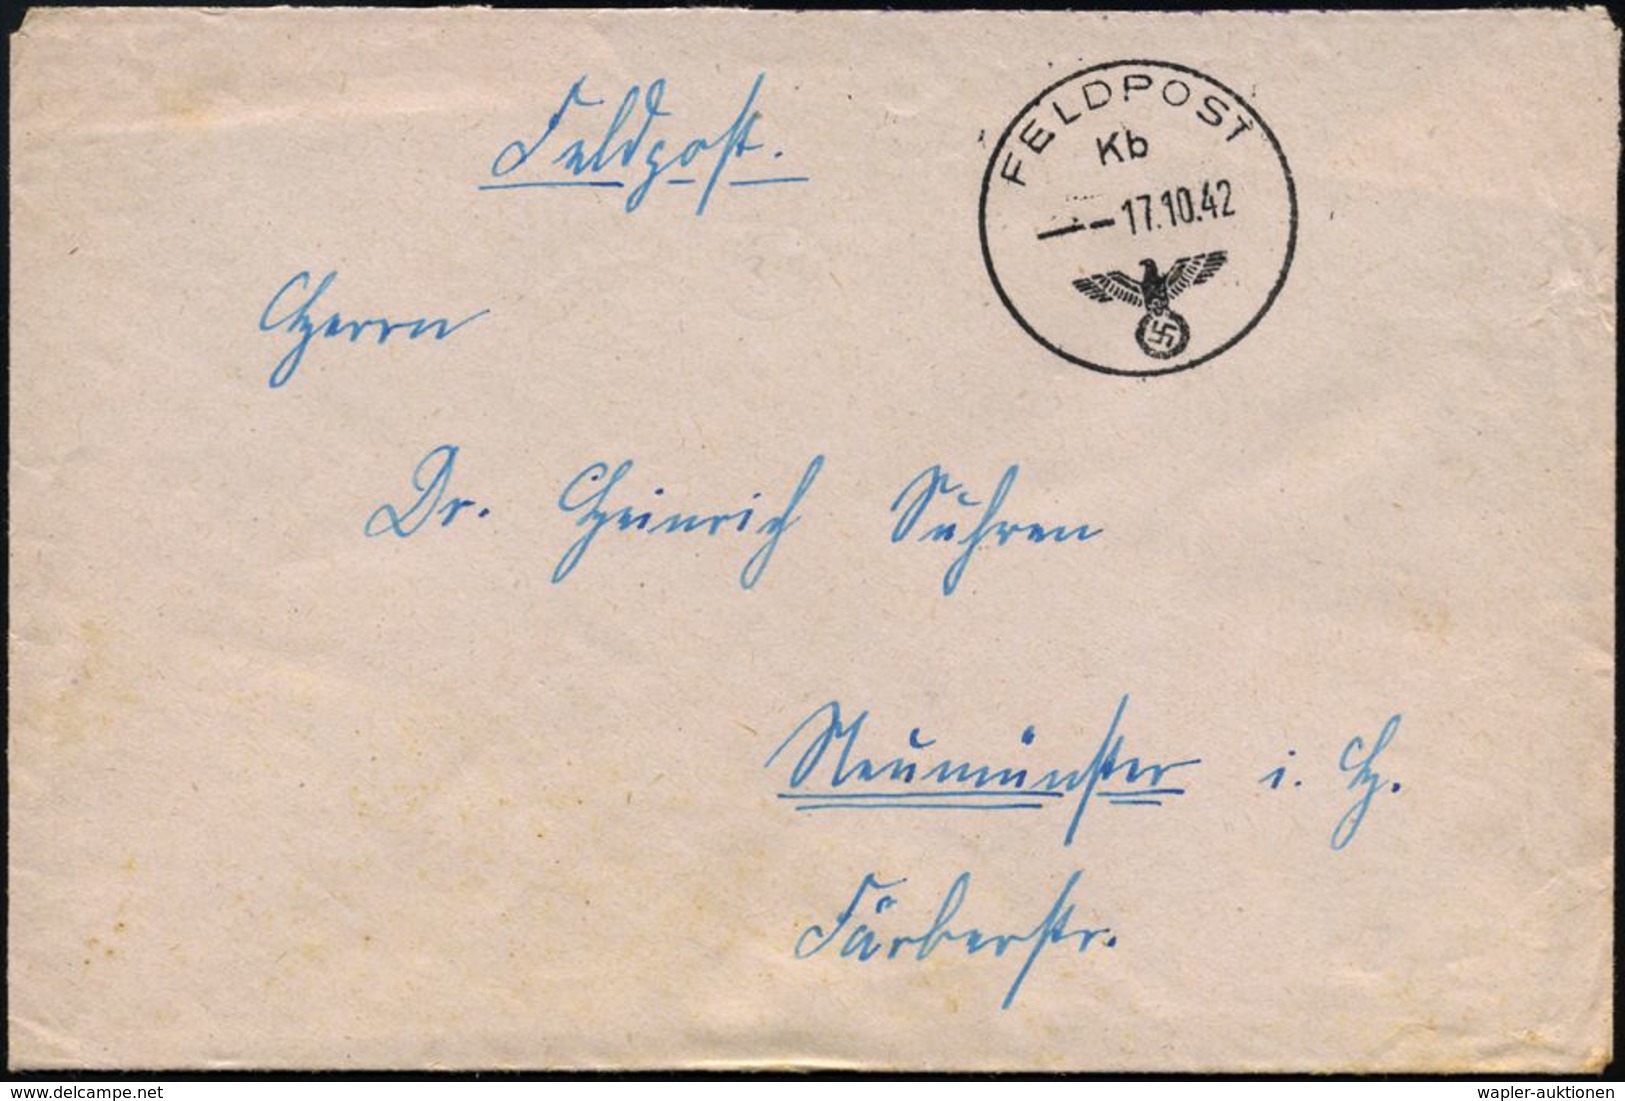 Feldpost.
FELDPOST
Kb
--17.10.42
Herrn
Dr. Heinrich Suhren
Neumünster i. H.
Färberstr.
delcampe.net
wapler-auktionen